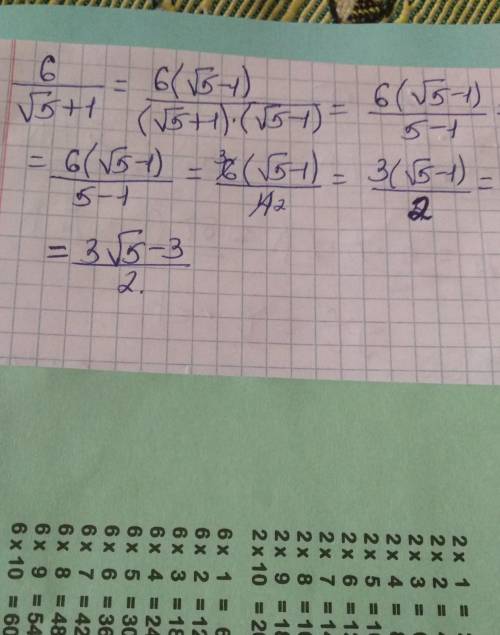 6/(√5+1) = 6(√5-1)/((√5+1)·(√5-1)) = 6(√5-1)/(5-1) =
= 6(√5-1)/(5-1) = ³6(√5-1)/4₂ = 3(√5-1)/2 =
= (3√5-3)/2.
2 x 1 =
2 x 2 =
2 x 3 =
2 x 4 =
2 x 5 = 1
2 x 6 = 1
2 x 7 = 1
2 x 8 = 1
2 x 9 = 1
2 x 10 = 2
6 x 1 = 6
6 x 2 = 12
6 x 3 = 18
6 x 4 = 24
6 x 5 = 30
6 x 6 = 36
6 x 7 = 42
6 x 8 = 48
6 x 9 = 54
6 x 10 = 60